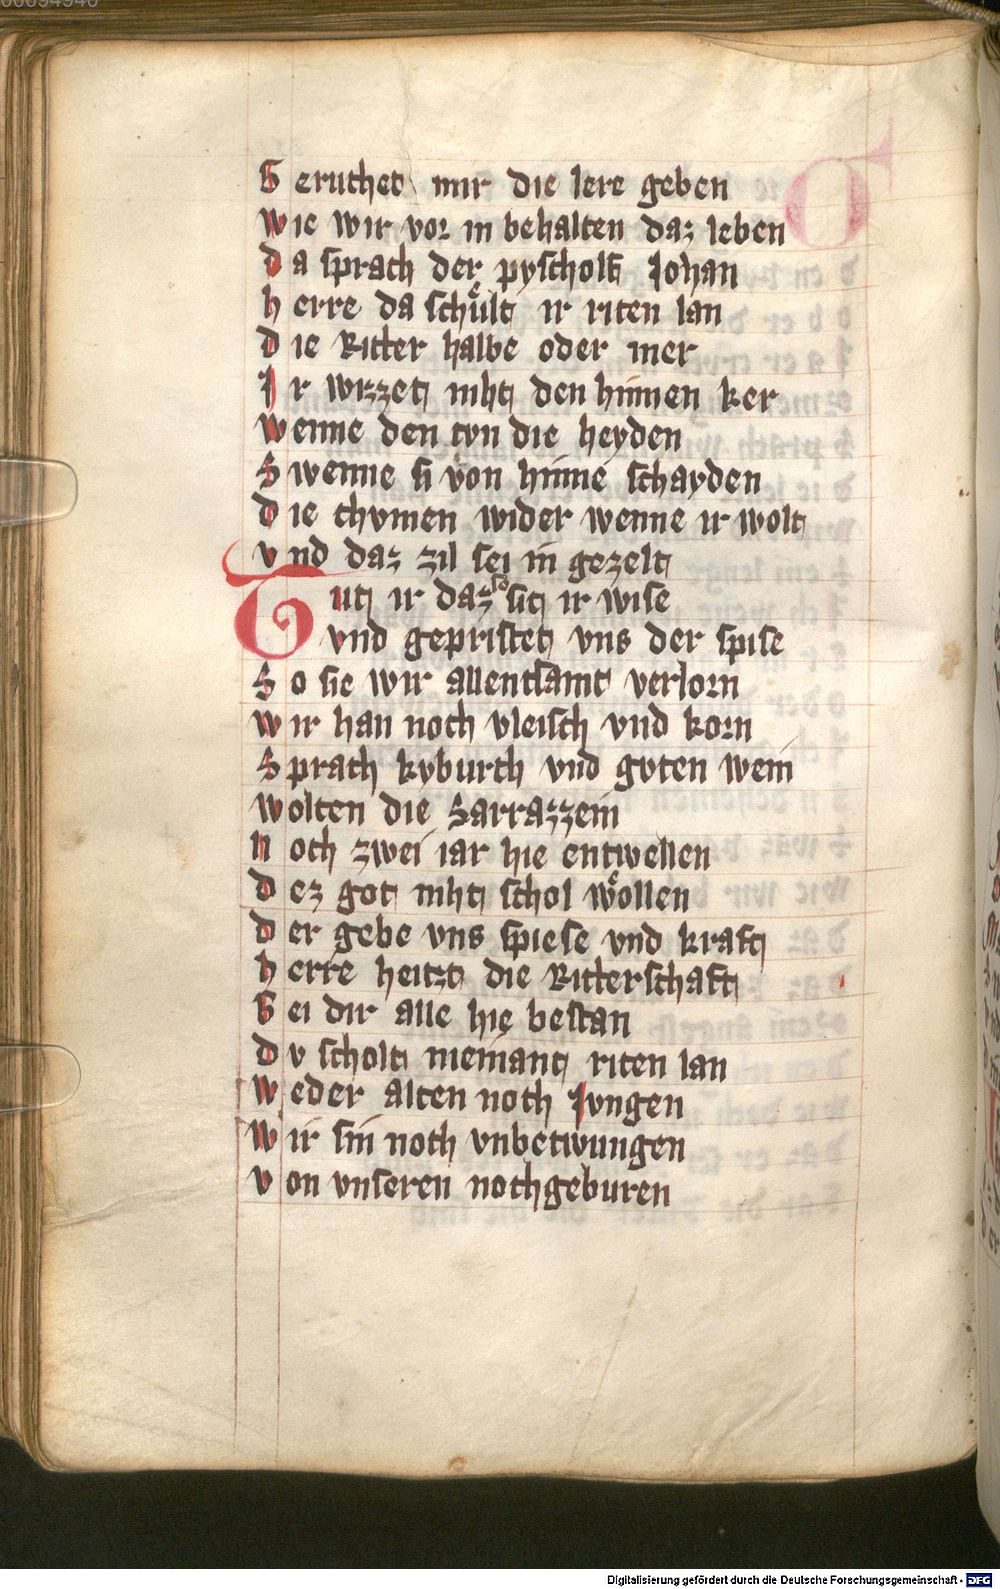 00094946
Geruchet mir die lere geben
Wie wir vor in behalten daz leben
da sprach der pyscholf Johan
herre da schuͤlt ir riten lan
die Ritter halbe oder mer
Ir wizzet niht den hinnen ker
Wenne den tvn die heyden
Swenne si von hinne schayden
die chvmen wider wenne ir wolt
vnd daz zil sei in gezelt
Tut ir daz so sit ir wise
vnd gepristet vns der spise
So sie wir allentsamt verlorn
Wir han noch vleisch vnd korn
Sprach kyburch vnd gvten wein
Wolten die Sarrazzein
noch zwei iar hie entwellen
dez got niht schol woͤllen
der gebe vns spiese vnd kraft
herre heitzt die Ritterschaft
Bei dir alle hie bestan
dv scholt niemant riten lan
Weder alten noch Jvngen
Wir sin noch vnbetwungen
von vnseren nochgeburen
Digitalisierung gefördert durch die Deutsche Forschungsgemeinschaft - DFG